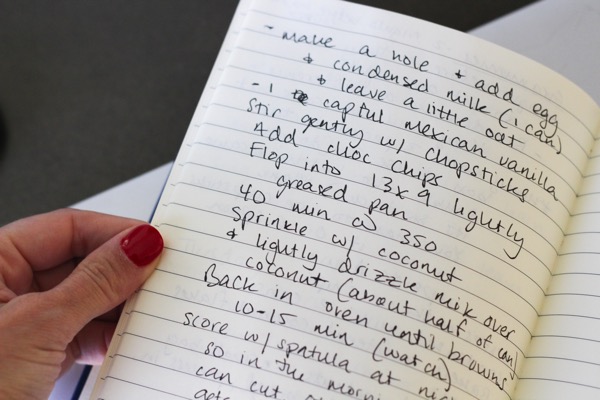 - make a hole + add egg
+ condensed milk (1 can)
+ leave a little out
- 1 capful mexican vanilla
Stir gently w/ chopsticks
Add choc chips
Flop into 13x9 lightly
greased pan
40 min @ 350
Sprinkle w/ coconut
+ lightly drizzle milk over
coconut (about half of can)
Back in oven until browns
10-15 min (watch)
score w/ spatula at
so in the
can cut